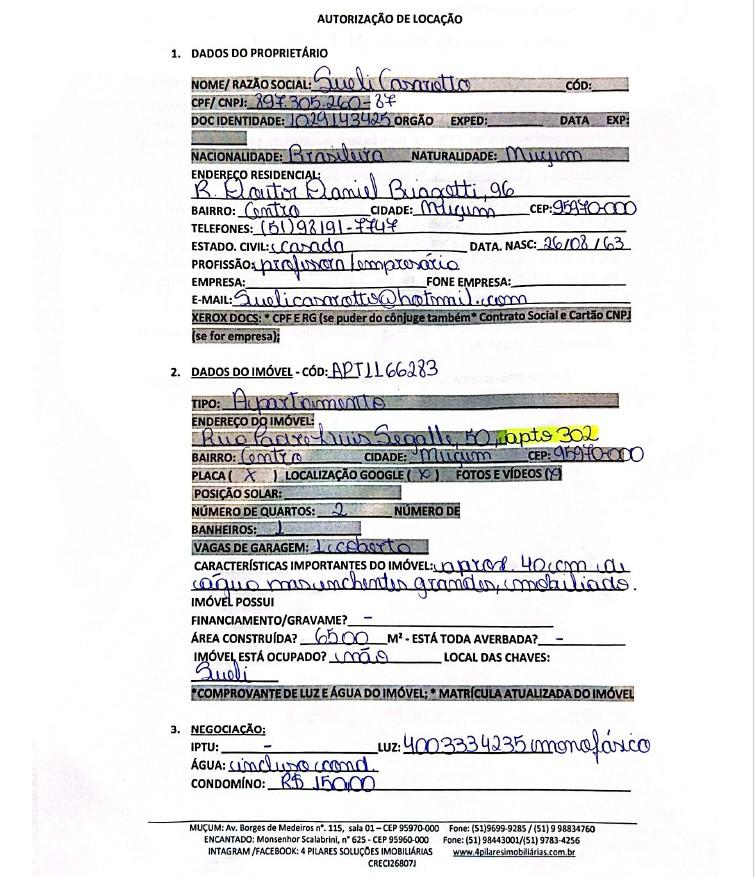 AUTORIZAÇÃO DE LOCAÇÃO
1. DADOS DO PROPRIETÁRIO
NOME/ RAZÃO SOCIAL: Sueli Casarotto CÓD:
CPF/ CNPJ: 897.305.260-87
DOC IDENTIDADE: 1029143425 ORGÃO EXPED: DATA EXP:
NACIONALIDADE: Brasileira NATURALIDADE: Muçum
ENDEREÇO RESIDENCIAL:
R. Doutor Daniel Biagotti, 96
BAIRRO: Centro CIDADE: Muçum CEP: 95970-000
TELEFONES: (51)98191-7747
ESTADO. CIVIL: casada DATA. NASC: 26/08/63
PROFISSÃO: professora/empresária
EMPRESA: FONE EMPRESA:
E-MAIL: suelicasarotto@hotmail.com
XEROX DOCS: * CPF E RG (se puder do cônjuge também* Contrato Social e Cartão CNPJ
(se for empresa);
2. DADOS DO IMÓVEL - CÓD: APT1166283
TIPO: Apartamento
ENDEREÇO DO IMÓVEL:
Rua Padre Luis Segalle, 50, apto 302
BAIRRO: Centro CIDADE: Muçum CEP: 95970-000
PLACA ( X ) LOCALIZAÇÃO GOOGLE ( X ) FOTOS E VÍDEOS (X)
POSIÇÃO SOLAR:
NÚMERO DE QUARTOS: 2 NÚMERO DE
BANHEIROS: 1
VAGAS DE GARAGEM: 1 coberto
CARACTERÍSTICAS IMPORTANTES DO IMÓVEL: aprox. 40cm de
água nas enchentes grandes, mobiliado.
IMÓVEL POSSUI
FINANCIAMENTO/GRAVAME? -
ÁREA CONSTRUÍDA? 65,00 M² - ESTÁ TODA AVERBADA? -
IMÓVEL ESTÁ OCUPADO? não LOCAL DAS CHAVES:
Sueli
*COMPROVANTE DE LUZ E ÁGUA DO IMÓVEL; * MATRÍCULA ATUALIZADA DO IMÓVEL
3. NEGOCIAÇÃO:
IPTU: - LUZ: 4003334235 monofásico
ÁGUA: incluso cond.
CONDOMÍNO: R$ 150,00
MUÇUM: Av. Borges de Medeiros nº. 115, sala 01 – CEP 95970-000 Fone: (51)9699-9285 / (51) 9 98834760
ENCANTADO: Monsenhor Scalabrini, nº 625 - CEP 95960-000 Fone: (51) 98443001/(51) 9783-4256
INTAGRAM /FACEBOOK: 4 PILARES SOLUÇÕES IMOBILIÁRIAS www.4pilaresimobiliárias.com.br
CRECI26807J